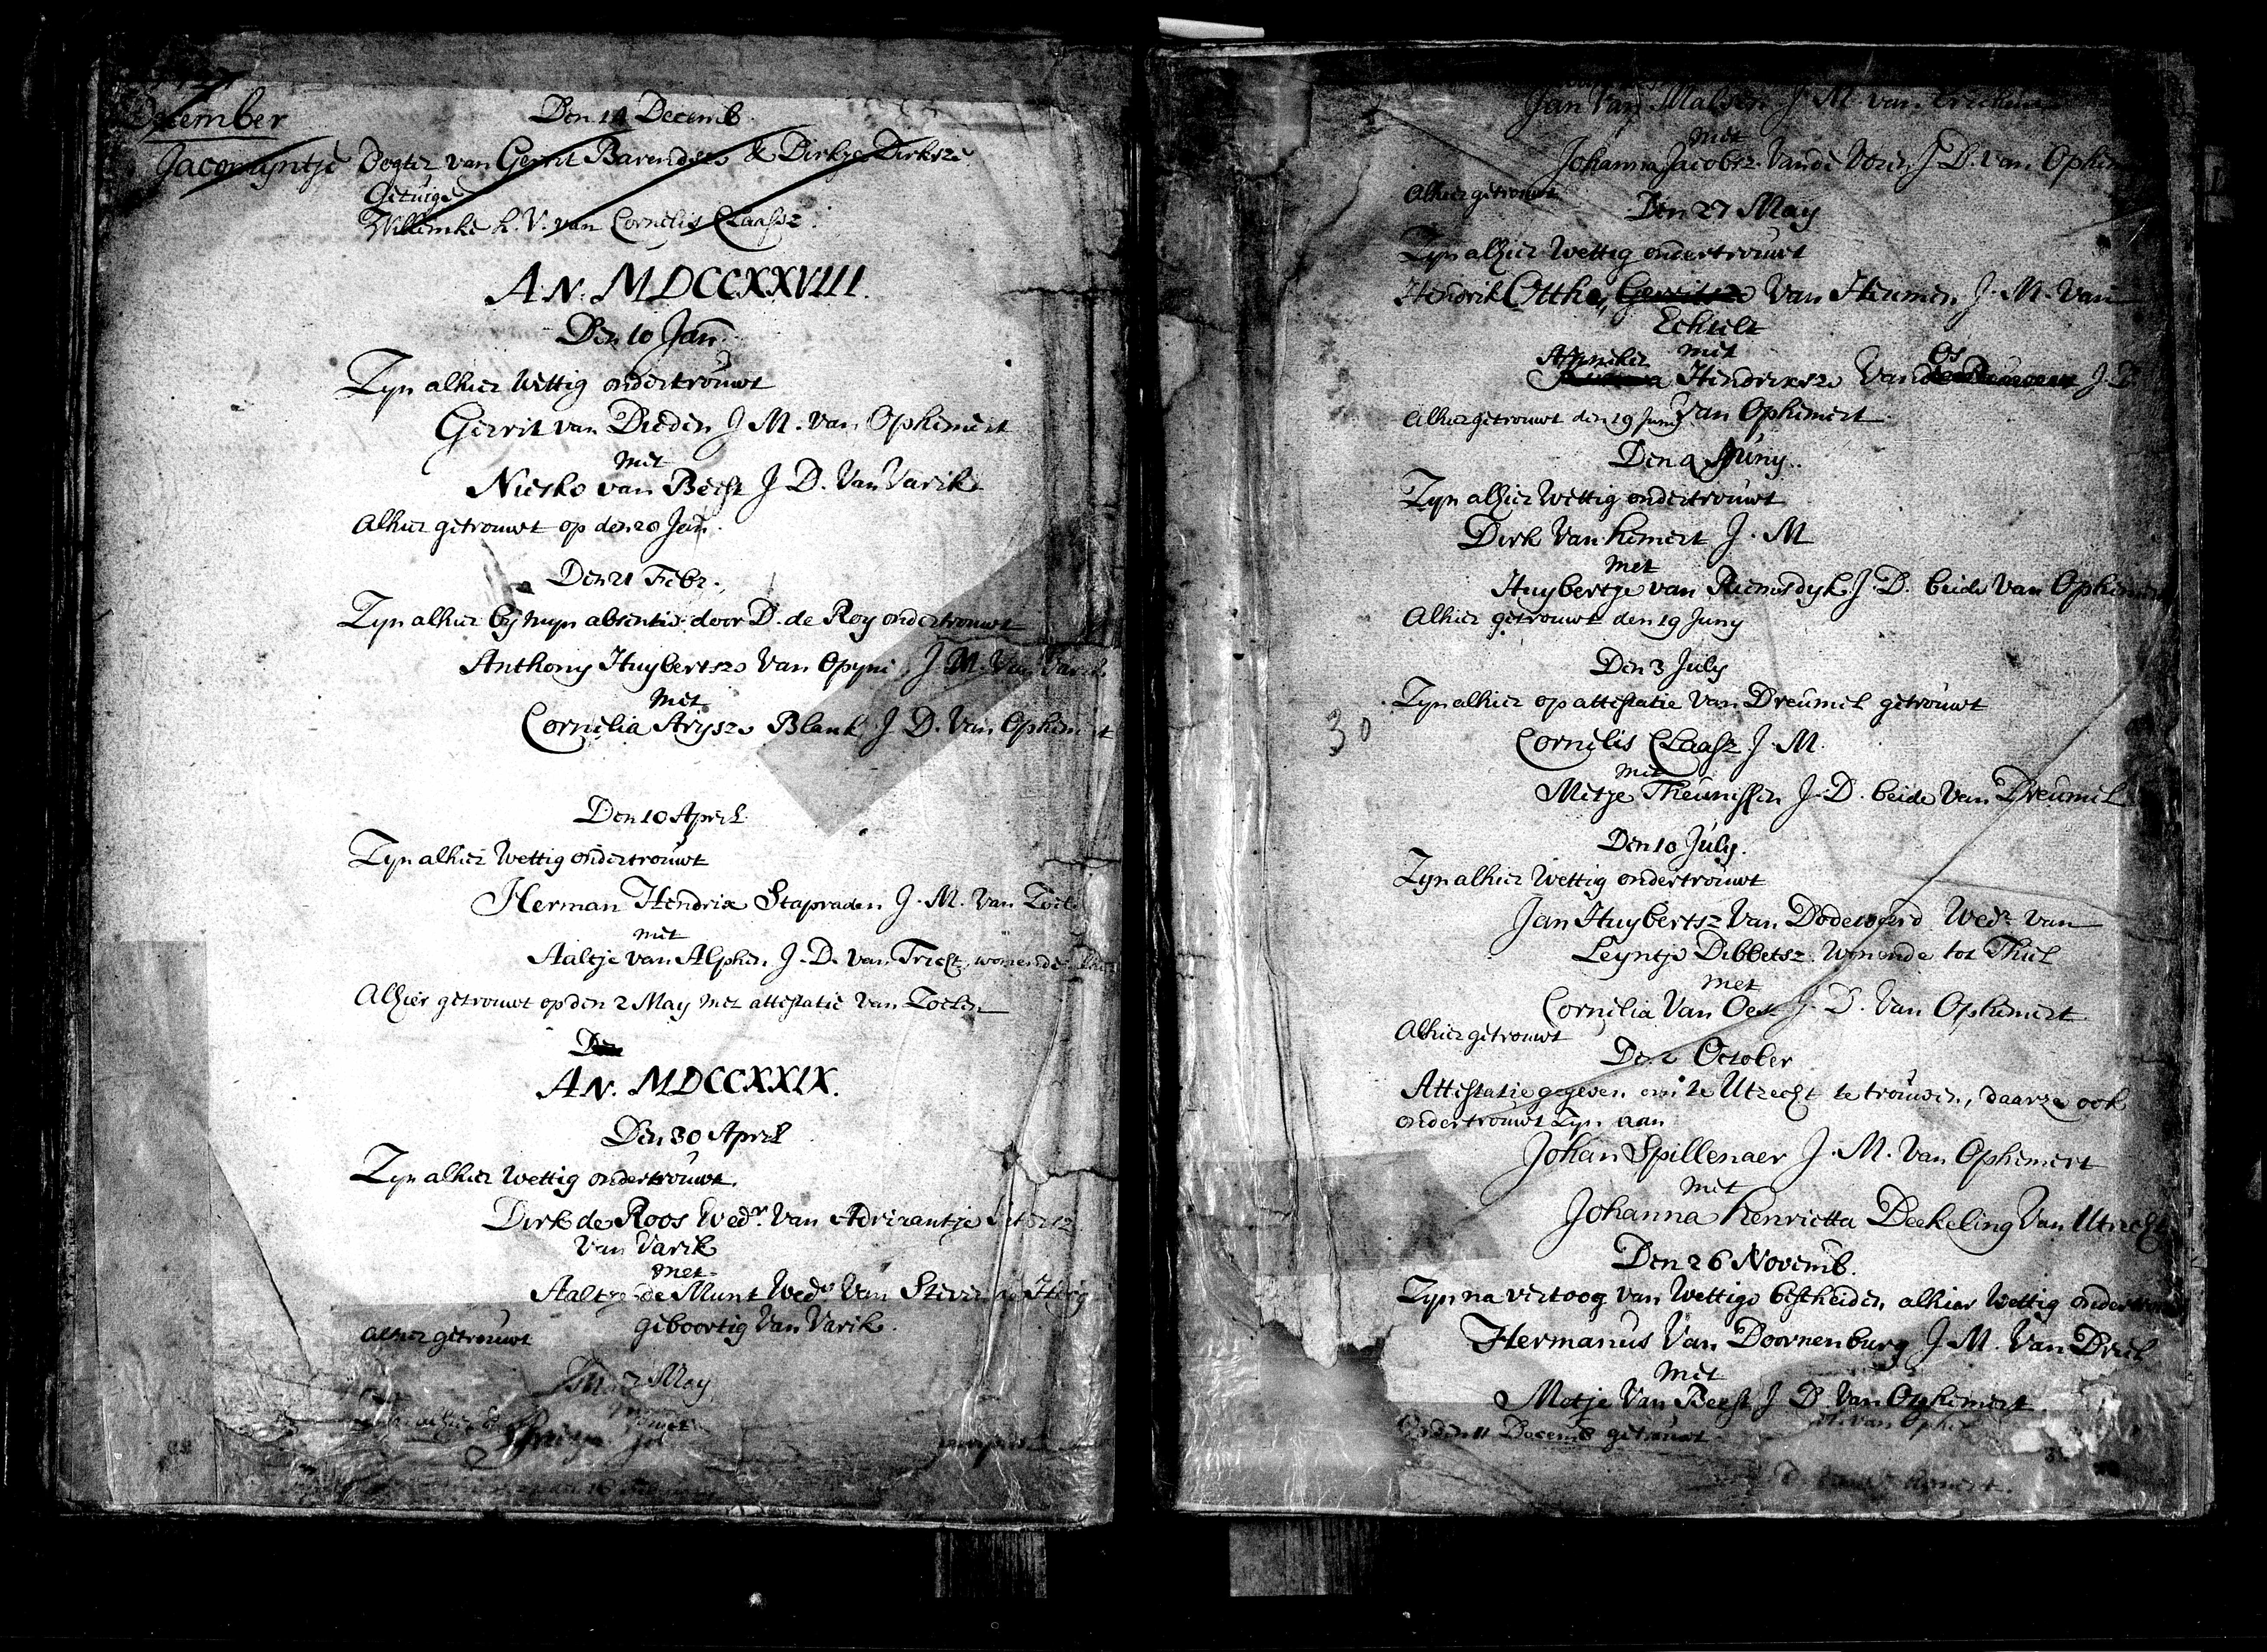 December
Den 14 Decemb.
Jacomyntje Dogter van Gerrit Barendsze & Dirkje Dirksze
Getuige
Willemke h. V. van Cornelis Claasz.
AN. MDCCXXVIII.
Den 10 Jan.
Zyn alhier Wettig ondertrouwt
Gerrit van Dieden J. M. van Ophemert
met
Nieske van Beest J. D. Van Varik
Alhier getrouwt op den 20 Jan.
Den 21 Febr.
Zyn alhier by myn absentie door D. de Roy ondertrouwt
Anthony Huybertsze Van Opyne J. M. Van Varik
Met
Cornelia Arysze Blank J. D. Van Ophemert
Den 10 April
Zyn alhier Wettig ondertrouwt
Herman Hendrix Stapraden J. M. Van
met
Aaltje van Alphen J. D. van Tricht, wonende
Alhier getrouwt op den 2 May met attestatie van Zoelen
Den
AN. MDCCXXIX.
Den 30 April
Zyn alhier Wettig ondertrouwt.
Dirk de Roos Wedr. Van Adriaantje
Van Varik
met
Aaltje de Munt Wede Van Steven de
geboortig Van Varik.
Alhier getrouwt
2 May
Jan Van Malsen J. M. van
met
Johanna Jacobsz. Van de J. D. van Ophemert
Alhier getrouwt
Den 27 May
Zyn alhier Wettig ondertrouwt
Hendrik Otthe, Gerritsze Van Heumen, J. M. Van
Echtelt
met
Anneker
Hendriksze Van Os J. D.
Van Ophemert
Alhier getrouwt den 19 Juny
Den Juny.
Zyn alhier Wettig ondertrouwt
Dirk Van hemert J. M
Met
Huybertje van Riemsdyk J. D. beide Van Ophemert
Alhier getrouwt den 19 Juny
Den 3 July
Zyn alhier op attestatie Van Dreumel getrouwt
30
Cornelis Claasz J. M.
met
Metje Theunissen J. D. beide Van Dreumel
Den 10 July.
Zyn alhier Wettig ondertrouwt
Jan Huybertsz Van Dodeweerd Wedr. van
Leyntje Dibbetsz. Wonende tot Thiel
met
Cornelia Van Oest J. D. Van Ophemert
Alhier getrouwt
Den 2 October
Attestatie gegeven om te Utrecht te trouwen, daar ze ook
ondertrouwt Zyn aan
Johan Spillenaer J. M. Van Ophemert
met
Johanna henrietta Deekeling Van Utrecht
Den 26 Novemb.
Zyn na vertoog van Wettige bescheiden alhier Wettig ondertrouwt
Hermanus Van Doornenburg J. M. Van Driel
met
Metje Van Beest J. D. Van Ophemert.
Op den 11 Decemb getrouwt